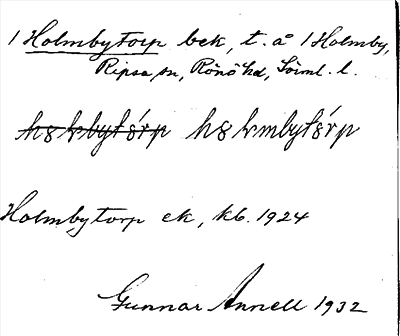 1 Holmbytorp bek, t. å 1 Holmby,
Ripsa sn, Rönö hd, Söml. l.
hȣkmbytȯ́rp
Holmbytorp ek, kb. 1924
Gunnar Annell 1932